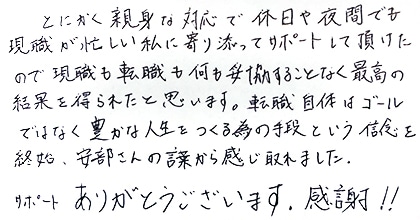 とにかく親身な対応で休日や夜間でも
現職が忙しい私に寄り添ってサポートして頂けた
ので現職も転職も何も妥協することなく最高の
結果を得られたと思います。転職自体はゴール
ではなく豊かな人生をつくる為の手段という信念を
終始、安部さんの言葉から感じ取れました。
サポート ありがとうございます。感謝!!